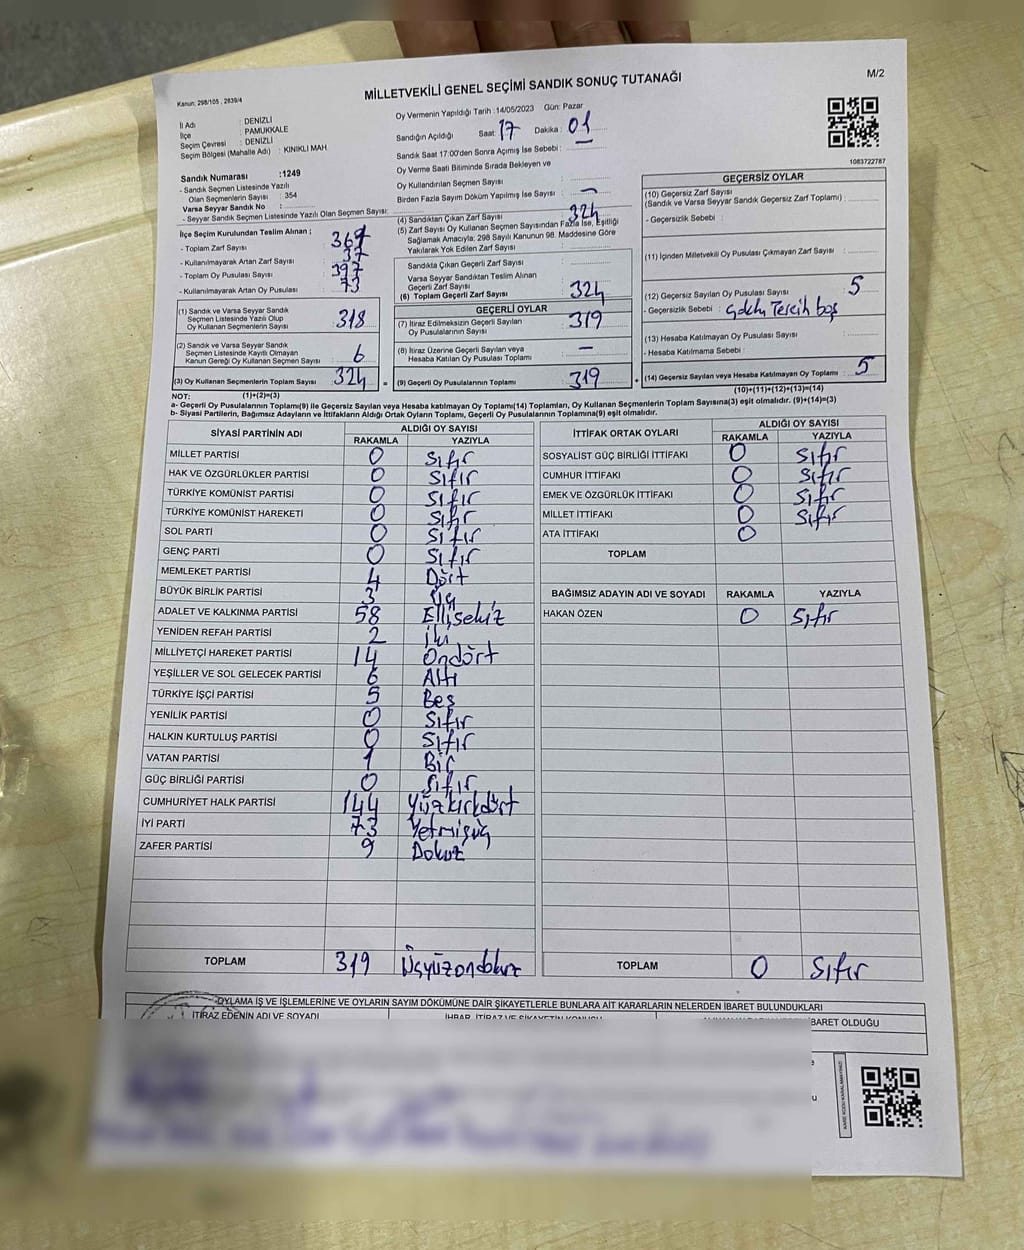 M/2
MİLLETVEKİLİ GENEL SEÇİMİ SANDIK SONUÇ TUTANAĞI
Kanun: 298/105, 2839/4
İl Adı : DENİZLİ
İlçe : PAMUKKALE
Seçim Çevresi : DENİZLİ
Seçim Bölgesi (Mahalle Adı) : KINIKLI MAH
Sandık Numarası :1249
- Sandık Seçmen Listesinde Yazılı
Olan Seçmenlerin Sayısı : 354
Varsa Seyyar Sandık No :
- Seyyar Sandık Seçmen Listesinde Yazılı Olan Seçmen Sayısı:
İlçe Seçim Kurulundan Teslim Alınan ;
- Toplam Zarf Sayısı :
- Kullanılmayarak Artan Zarf Sayısı : 37
- Toplam Oy Pusulası Sayısı : 397
- Kullanılmayarak Artan Oy Pusulası : 73
(1) Sandık ve Varsa Seyyar Sandık
Seçmen Listesinde Yazılı Olup
Oy Kullanan Seçmenlerin Sayısı : 318
(2) Sandık ve Varsa Seyyar Sandık
Seçmen Listesinde Kayıtlı Olmayan
Kanun Gereği Oy Kullanan Seçmen Sayısı : 6
(3) Oy Kullanan Seçmenlerin Toplam Sayısı : 324
Oy Vermenin Yapıldığı Tarih : 14/05/2023 Gün: Pazar
Sandığın Açıldığı Saat : 17 Dakika : 01
Sandık Saat 17:00'den Sonra Açılmış İse Sebebi : —
Oy Verme Saati Bitiminde Sırada Bekleyen ve
Oy Kullandırılan Seçmen Sayısı :
Birden Fazla Sayım Döküm Yapılmış İse Sayısı : —
(4) Sandıktan Çıkan Zarf Sayısı : 324
(5) Zarf Sayısı Oy Kullanan Seçmen Sayısından Fazla İse, Eşitliği
Sağlamak Amacıyla; 298 Sayılı Kanunun 98. Maddesine Göre
Yakılarak Yok Edilen Zarf Sayısı :
Sandıkta Çıkan Geçerli Zarf Sayısı :
Varsa Seyyar Sandıktan Teslim Alınan
Geçerli Zarf Sayısı :
(6) Toplam Geçerli Zarf Sayısı : 324
GEÇERLİ OYLAR
(7) İtiraz Edilmeksizin Geçerli Sayılan
Oy Pusulalarının Sayısı : 319
(8) İtiraz Üzerine Geçerli Sayılan veya
Hesaba Katılan Oy Pusulası Toplamı : —
= (9) Geçerli Oy Pusulalarının Toplamı : 319 +
1083722787
GEÇERSİZ OYLAR
(10) Geçersiz Zarf Sayısı
(Sandık ve Varsa Seyyar Sandık Geçersiz Zarf Toplamı) :
- Geçersizlik Sebebi :
(11) İçinden Milletvekili Oy Pusulası Çıkmayan Zarf Sayısı :
(12) Geçersiz Sayılan Oy Pusulası Sayısı : 5
- Geçersizlik Sebebi : Tercih boş
(13) Hesaba Katılmayan Oy Pusulası Sayısı :
- Hesaba Katılmama Sebebi :
(14) Geçersiz Sayılan veya Hesaba Katılmayan Oy Toplamı : 5
NOT: (1)+(2)=(3) (10)+(11)+(12)+(13)=(14)
a- Geçerli Oy Pusulalarının Toplamı(9) ile Geçersiz Sayılan veya Hesaba katılmayan Oy Toplamı(14) Toplamları, Oy Kullanan Seçmenlerin Toplam Sayısına(3) eşit olmalıdır. (9)+(14)=(3)
b- Siyasi Partilerin, Bağımsız Adayların ve İttifakların Aldığı Ortak Oyların Toplamı, Geçerli Oy Pusulalarının Toplamına(9) eşit olmalıdır.
SİYASİ PARTİNİN ADI ALDIĞI OY SAYISI
RAKAMLA YAZIYLA
MİLLET PARTİSİ 0 Sıfır
HAK VE ÖZGÜRLÜKLER PARTİSİ 0 Sıfır
TÜRKİYE KOMÜNİST PARTİSİ 0 Sıfır
TÜRKİYE KOMÜNİST HAREKETİ 0 Sıfır
SOL PARTİ 0 Sıfır
GENÇ PARTİ 0 Sıfır
MEMLEKET PARTİSİ 4 Dört
BÜYÜK BİRLİK PARTİSİ 3 Üç
ADALET VE KALKINMA PARTİSİ 58 Ellisekiz
YENİDEN REFAH PARTİSİ 2 İki
MİLLİYETÇİ HAREKET PARTİSİ 14 Ondört
YEŞİLLER VE SOL GELECEK PARTİSİ 6 Altı
TÜRKİYE İŞÇİ PARTİSİ 5 Beş
YENİLİK PARTİSİ 0 Sıfır
HALKIN KURTULUŞ PARTİSİ 0 Sıfır
VATAN PARTİSİ 1 Bir
GÜÇ BİRLİĞİ PARTİSİ 0 Sıfır
CUMHURİYET HALK PARTİSİ 144 Yüzkırkdört
İYİ PARTİ 73 Yetmişüç
ZAFER PARTİSİ 9 Dokuz
TOPLAM 319 Üçyüzondokuz
İTTİFAK ORTAK OYLARI ALDIĞI OY SAYISI
RAKAMLA YAZIYLA
SOSYALİST GÜÇ BİRLİĞİ İTTİFAKI 0 Sıfır
CUMHUR İTTİFAKI 0 Sıfır
EMEK VE ÖZGÜRLÜK İTTİFAKI 0 Sıfır
MİLLET İTTİFAKI 0 Sıfır
ATA İTTİFAKI 0
TOPLAM
BAĞIMSIZ ADAYIN ADI VE SOYADI RAKAMLA YAZIYLA
HAKAN ÖZEN 0 Sıfır
TOPLAM 0 Sıfır
OYLAMA İŞ VE İŞLEMLERİNE VE OYLARIN SAYIM DÖKÜMÜNE DAİR ŞİKAYETLERLE BUNLARA AİT KARARLARIN NELERDEN İBARET BULUNDUKLARI
İTİRAZ EDENİN ADI VE SOYADI İHBAR, İTİRAZ VE ŞİKAYETİN KONUSU İBARET OLDUĞU
KARE KODU KARALAMAYINIZ!